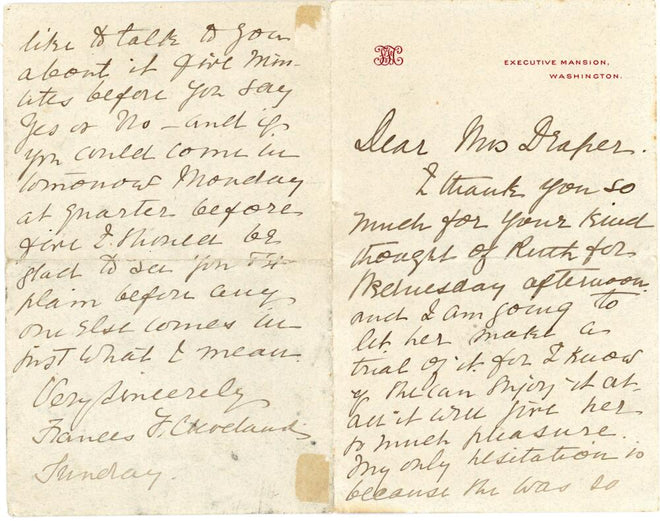 EXECUTIVE MANSION,
WASHINGTON.
Dear Mrs Draper.
I thank you so
much for your kind
thought of Ruth for
Wednesday afternoon
and I am going to
let her make a
trial of it for I know
if she can enjoy it at
all it will give her
so much pleasure.
My only hesitation is
because she was so
like to talk to you
about it five min-
utes before you say
Yes or No - and if
you could come in
tomorrow Monday
at quarter before
five I should be
glad to see you & ex-
plain before any
one else comes in
just what I mean.
Very sincerely
Frances F. Cleveland
Sunday.